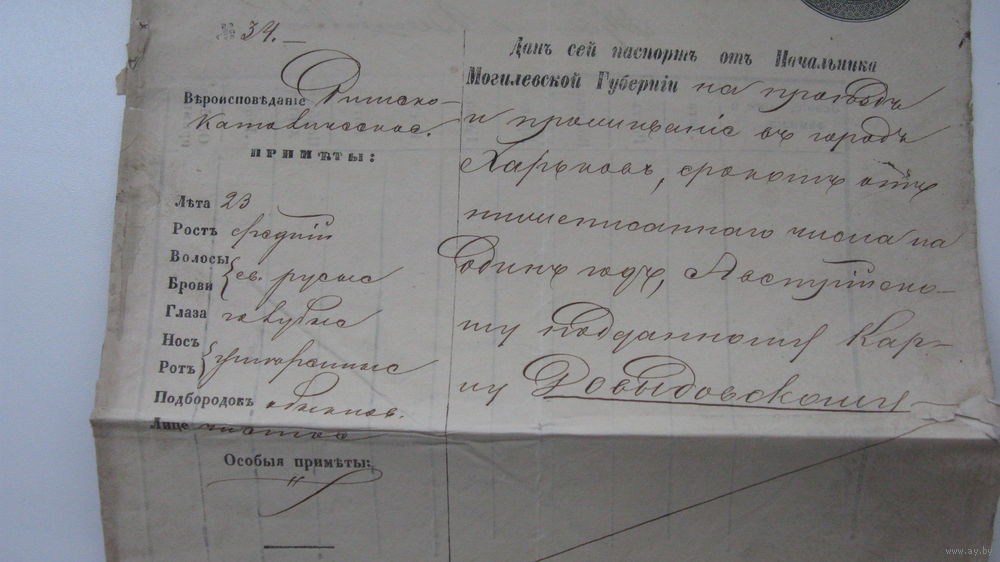 № 34.
Вѣроисповѣданіе Римско-
Католическое.
ПРИМѢТЫ:
Лѣта 23
Ростъ средній
Волосы
Брови св. русые
Глаза голубые
Носъ
Ротъ умѣренные
Подбородокъ обыкнов.
Лице чистое
Особыя примѣты:
Данъ сей паспортъ отъ Начальника
Могилевской Губерніи на проѣздъ
и проживаніе въ городѣ
Харьковѣ, срокомъ отъ
нижеписаннаго числа на
одинъ годъ, Австрійско-
му подданному Кар-
лу Довыдовскому
www.ay.by